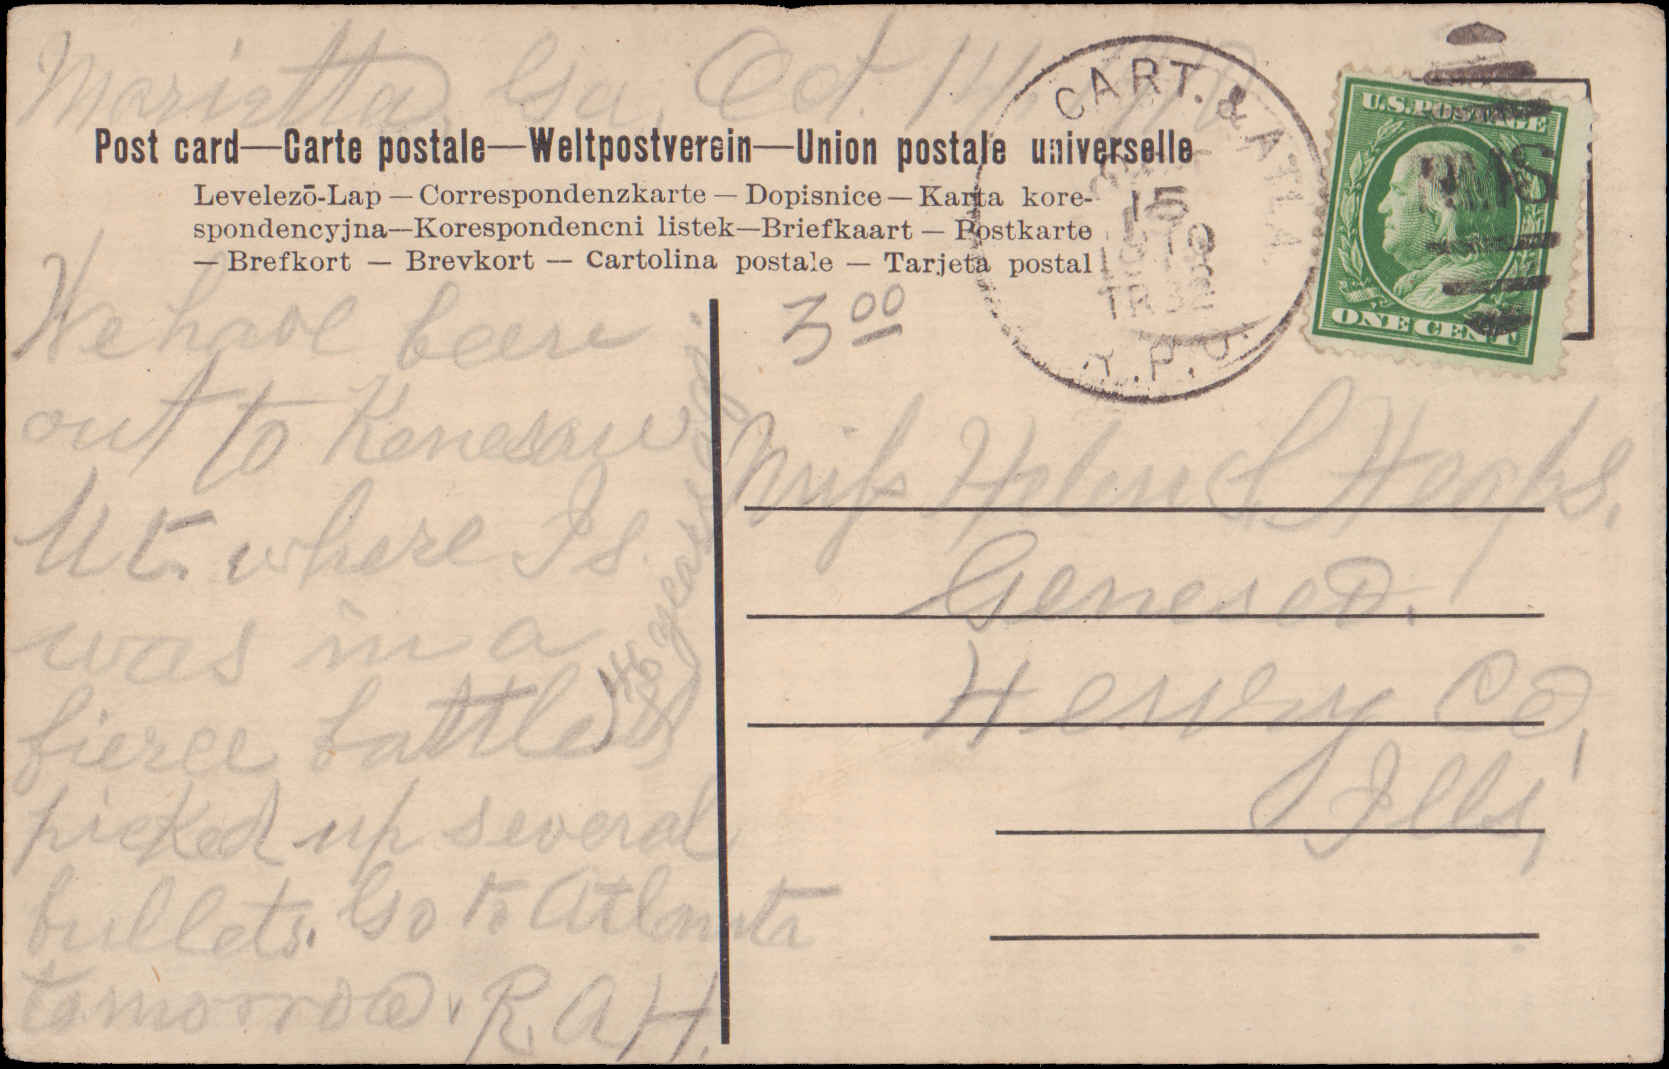 Marietta, Ga, Oct. 14, 1910
Post card—Carte postale—Weltpostverein—Union postale universelle
Levelezō-Lap — Correspondenzkarte — Dopisnice — Karta kore-
spondencyjna—Korespondencni listek—Briefkaart — Postkarte
— Brefkort — Brevkort — Cartolina postale — Tarjeta postal
CART. & ATLA
15
1910
TR 32
R.P.O.
U.S. POSTAGE
ONE CENT
RMS
3 00
We have been
out to Kenesaw
Mt. where I s.
was in a
fierce battle
46 years ago.
picked up several
bullets. Go to Atlanta
tomorrow. R.A.H.
Miss Heaps.
Geneseo.
Henry Co,
Ills,